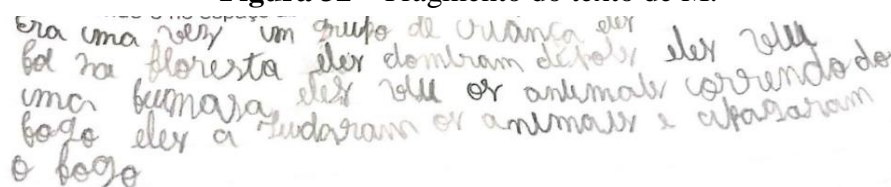 Figura 32 – Fragmento do texto de M.
Era uma vez um grupo de criança eles
foi na floresta eles dombram depois eles viu
uma fumasa eles viu os animais correndo do
fogo eles a judaram os animais e apagaram
o fogo